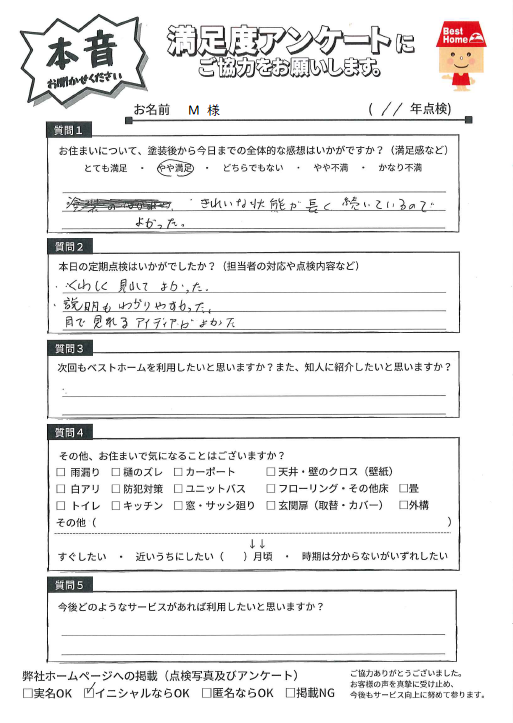 本音
お聞かせください
満足度アンケートに
ご協力をお願いします。
Best Home
お名前 M 様 ( 11 年点検)
質問1
お住まいについて、塗装後から今日までの全体的な感想はいかがですか？（満足感など）
とても満足 ・ やや満足 ・ どちらでもない ・ やや不満 ・ かなり不満
きれいな状態が長く続いているので
よかった。
質問2
本日の定期点検はいかがでしたか？（担当者の対応や点検内容など）
・くわしく見れてよかった。
・説明もわかりやすかった。
目で見れるアイディアがよかった
質問3
次回もベストホームを利用したいと思いますか？また、知人に紹介したいと思いますか？
質問4
その他、お住まいで気になることはございますか？
□ 雨漏り □ 樋のズレ □ カーポート □ 天井・壁のクロス（壁紙）
□ 白アリ □ 防犯対策 □ ユニットバス □ フローリング・その他床 □畳
□ トイレ □ キッチン □ 窓・サッシ廻り □ 玄関扉（取替・カバー） □外構
その他（ ）
↓↓
すぐしたい ・ 近いうちにしたい（ ）月頃 ・ 時期は分からないがいずれしたい
質問5
今後どのようなサービスがあれば利用したいと思いますか？
弊社ホームページへの掲載（点検写真及びアンケート）
□実名OK ☑イニシャルならOK □匿名ならOK □掲載NG
ご協力ありがとうございました。
お客様の声を真摯に受け止め、
今後もサービス向上に努めて参ります。